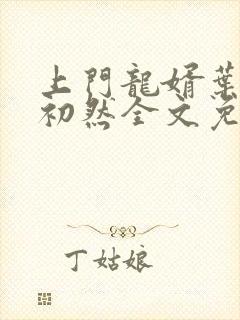 上門龍婿葉
初然全文免
丁姑娘